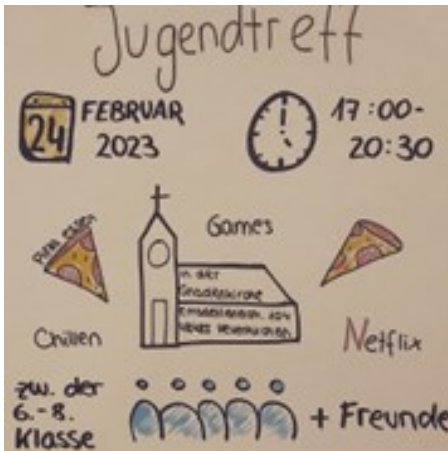 Jugendtreff
24
FEBRUAR
2023
17:00-
20:30
Pizza essen
Games
in der
Gnadenkirche
Chillen
Netflix
zw. der
6.-8.
Klasse
+ Freunde